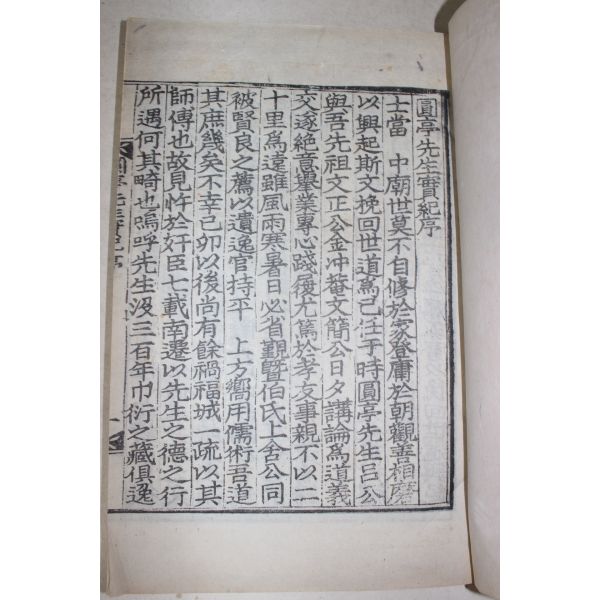 圓亭先生實紀序
士當 中廟世莫不自修於家登庸於朝觀善相磨
以興起斯文挽回世道爲己任于時圓亭先生呂公
與吾先祖文正公金冲菴文簡公日夕講論爲道義
交遂絶意擧業專心踐履尤篤於孝友事親不以二
十里爲遠雖風雨寒暑日必省覲曁伯氏上舍公同
被賢良之薦以遺逸官持平 上方嚮用儒術吾道
其庶幾矣不幸己卯以後尚有餘禍福城一疏以其
師傅也故見忤於奸臣七載南遷以先生之德之行
所遇何其畸也嗚呼先生沒三百年巾衍之藏俱逸
圓亭先生實紀序
一